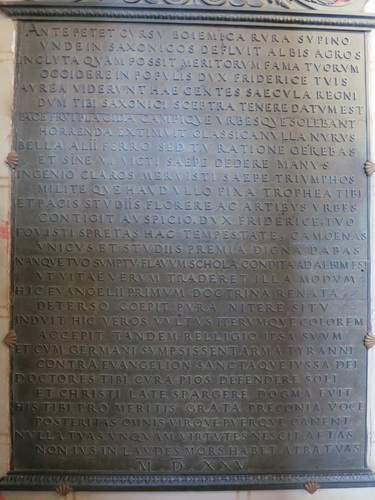 ANTE PETET CURSU BOIEMICA RURA SUPINO
UNDE IN SAXONICOS DEFLUIT ALBIS AGROS
INCLYTA QUAM POSSIT MERITORUM FAMA TUORUM
OCCIDERE IN POPULIS DUX FRIDERICE TUIS
AUREA VIDERUNT HAE GENTES SAECULA REGNI
DUM TIBI SAXONICI SCEPTRA TENERE DATUM EST
PACE FRUI PLACIDA CAMPIQUE URBESQUE SOLEBANT
HORRENDA EXTIMUIT CLASSICA NULLA NURUS
BELLA ALII FERRO SED TU RATIONE GEREBAS
ET SINE VI VICTI SAEPE DEDERE MANUS
INGENIO CLAROS MERUISTI SAEPE TRIUMPHOS
MILITE QUE HAUD ULLO FIXA TROPHEA TIBI
ET PACIS STUDIIS FLORERE AC ARTIBUS URBES
CONTIGIT AUSPICIO DUX FRIDERICE TUO
FOVISTI SPRETAS HAC TEMPESTATE CAMOENAS
UNICUS ET STUDIIS PREMIA DIGNA DABAS
NANQUE TUO SUMPTU FLAVUM SCHOLA CONDITA AD ALBIM EST
UT VITAE VERUM TRADERET ILLA MODUM
HIC EVANGELII PRIMUM DOCTRINA RENATA
DETERSO COEPIT PURA NITERE SITU
INDUIT HIC VEROS VULTUS ITERUMQUE COLOREM
ACCEPIT TANDEM RELLIGIO IPSA SUUM
ET CUM GERMANI SUMPSISSENT ARMA TYRANNI
CONTRA EVANGELION SANCTAQUE IUSSA DEI
DOCTORES TIBI CURA PIOS DEFENDERE SOLI
ET CHRISTI LATE SPARGERE DOGMA FUIT
HIS TIBI PRO MERITIS GRATA PRECONIA VOCE
POSTERITAS OMNIS VIRQUE PUERQUE CANENT
NULLA TUAS UNQUAM VIRTUTES NESCIET AETAS
NON IUS IN LAUDES MORS HABET ATRA TUAS
M D XXV